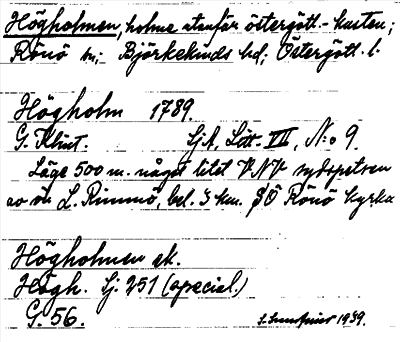 Högholmen, holme utanför östergött.-kusten;
Rönö sn; Björkekinds hd; Östergötl. l.
Högholm 1789.
G. Klint. SjA, Litt. VII, No 9.
Läge 500 m. något litet VNV sydspetsen
av ön L. Rimmö, bel. 3 km. SÖ Rönö kyrka
Högholmen ek.
Högh. Sj. 251 (special.)
G. 56. 1939.